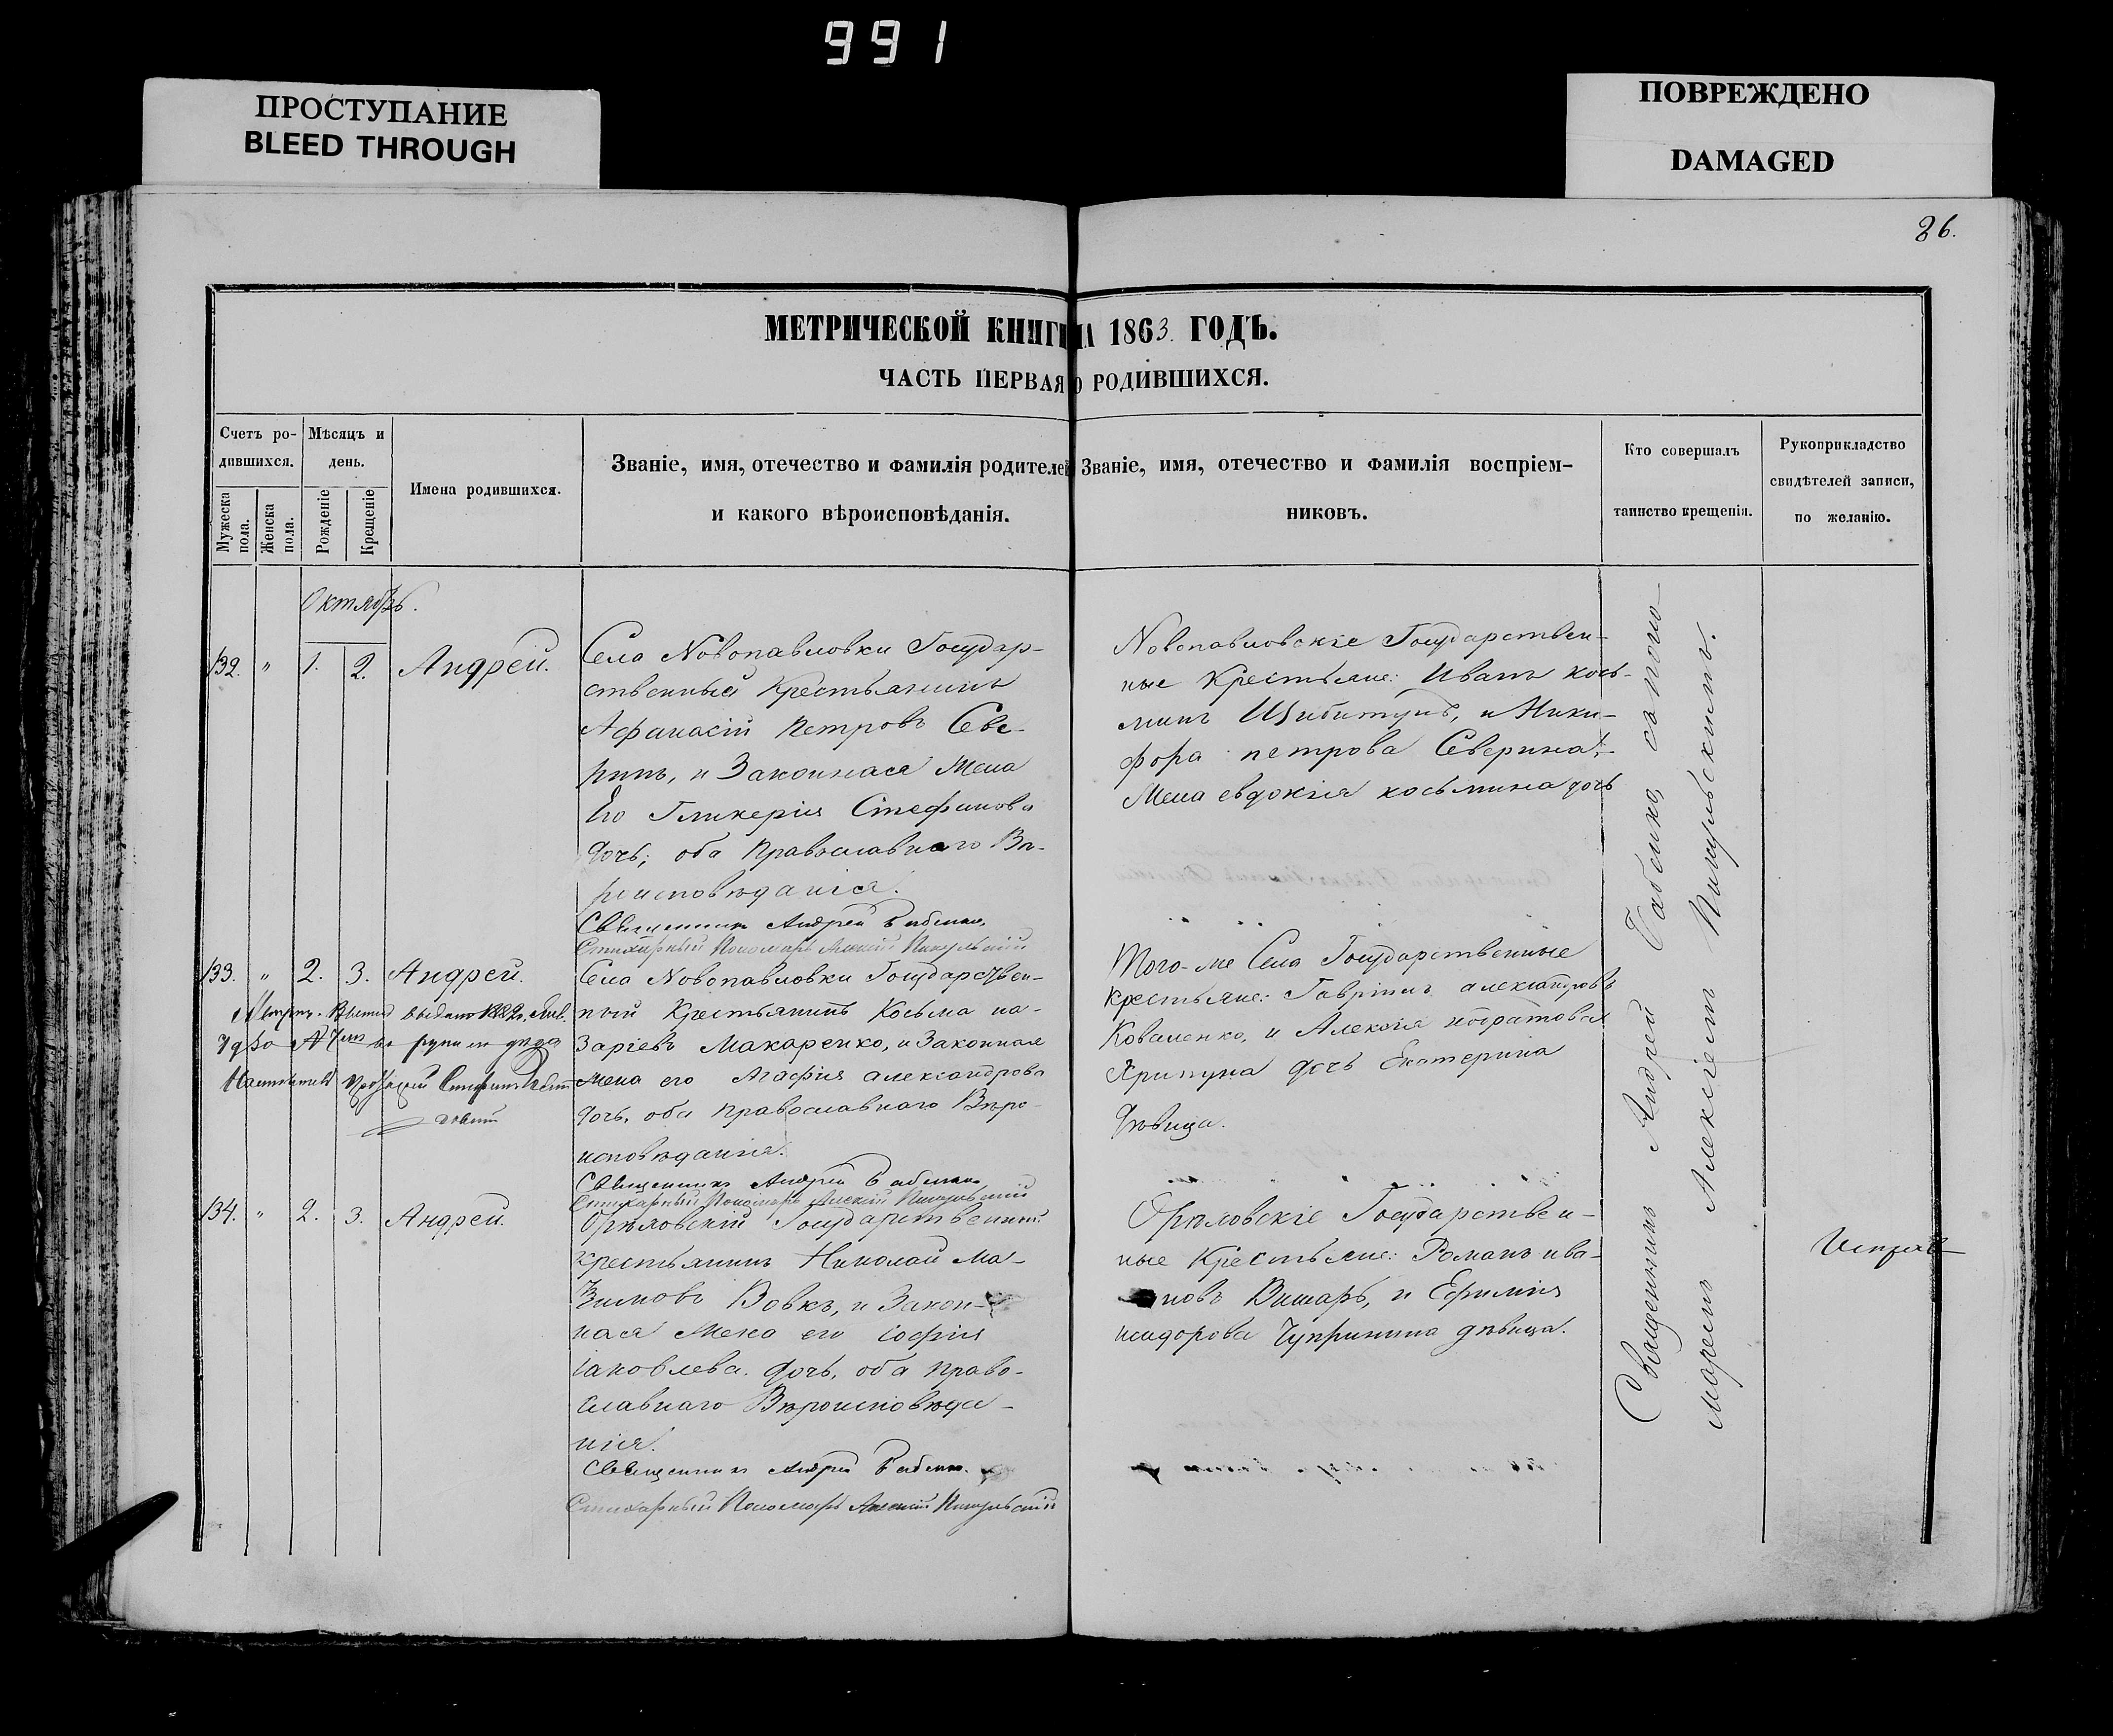 991
ПРОСТУПАНИЕ
BLEED THROUGH
ПОВРЕЖДЕНО
DAMAGED
86.
МЕТРИЧЕСКОЙ КНИГИ НА 1863 ГОДЪ.
ЧАСТЬ ПЕРВАЯ О РОДИВШИХСЯ.
Счетъ ро-
дившихся.
Мужеска
пола.
Женска
пола.
Мѣсяцъ и
день.
Рожденіе
Крещеніе
Имена родившихся.
Званіе, имя, отечество и фамилія родителей
и какого вѣроисповѣданія.
Званіе, имя, отечество и фамилія воспріем-
никовъ.
Кто совершалъ
таинство крещенія.
Рукоприкладство
свидѣтелей записи,
по желанію.
Октябрь.
132. " 1. 2. Андрей.
Села Новопавловки Государ-
ственный Крестьянинъ
Афанасій Петровъ Севе-
ринъ, и Законная Жена
Его Гликерія Стефанова
дочь; оба Православнаго Вѣ-
роисповѣданія.
Священникъ Андрей Бабенко.
Стихарный Пономарь Алексій
Новопавловскіе Государствен-
ные Крестьяне: Иванъ Кось-
минъ и Ники-
фора петрова Северина
Жена евдокія косьмина дочь
133. " 2. 3. Андрей.
выдано 1882
Села Новопавловки Государствен-
ный Крестьянинъ Косьма на-
заріевъ Макаренко, и Законная
жена его Агафия александрова
дочь, оба Православнаго Вѣро-
исповѣданія.
Священникъ Андрей Бабенко
Стихарный Пономарь Алексій
Того-же Села Государственные
крестьяне: Гавріилъ александровъ
Коваленко, и
дочь Екатерина
дѣвица.
134. " 2. 3. Андрей.
Орѣловскій Государственный
крестьянинъ Николай Ма-
зимовъ Вовкъ, и Закон-
ная Жена его Софія
Іаковлева дочь, оба право-
славнаго Вѣроисповѣда-
нія.
Священникъ Андрей Бабенко.
Стихарный Пономарь Алексій
Орѣловскіе Государствен-
ные Крестьяне: Романъ ива-
новъ и Ефимія
исидорова Чупринина дѣвица.
Священникъ Андрей Бабенко, съ поно-
маремъ Алексіемъ